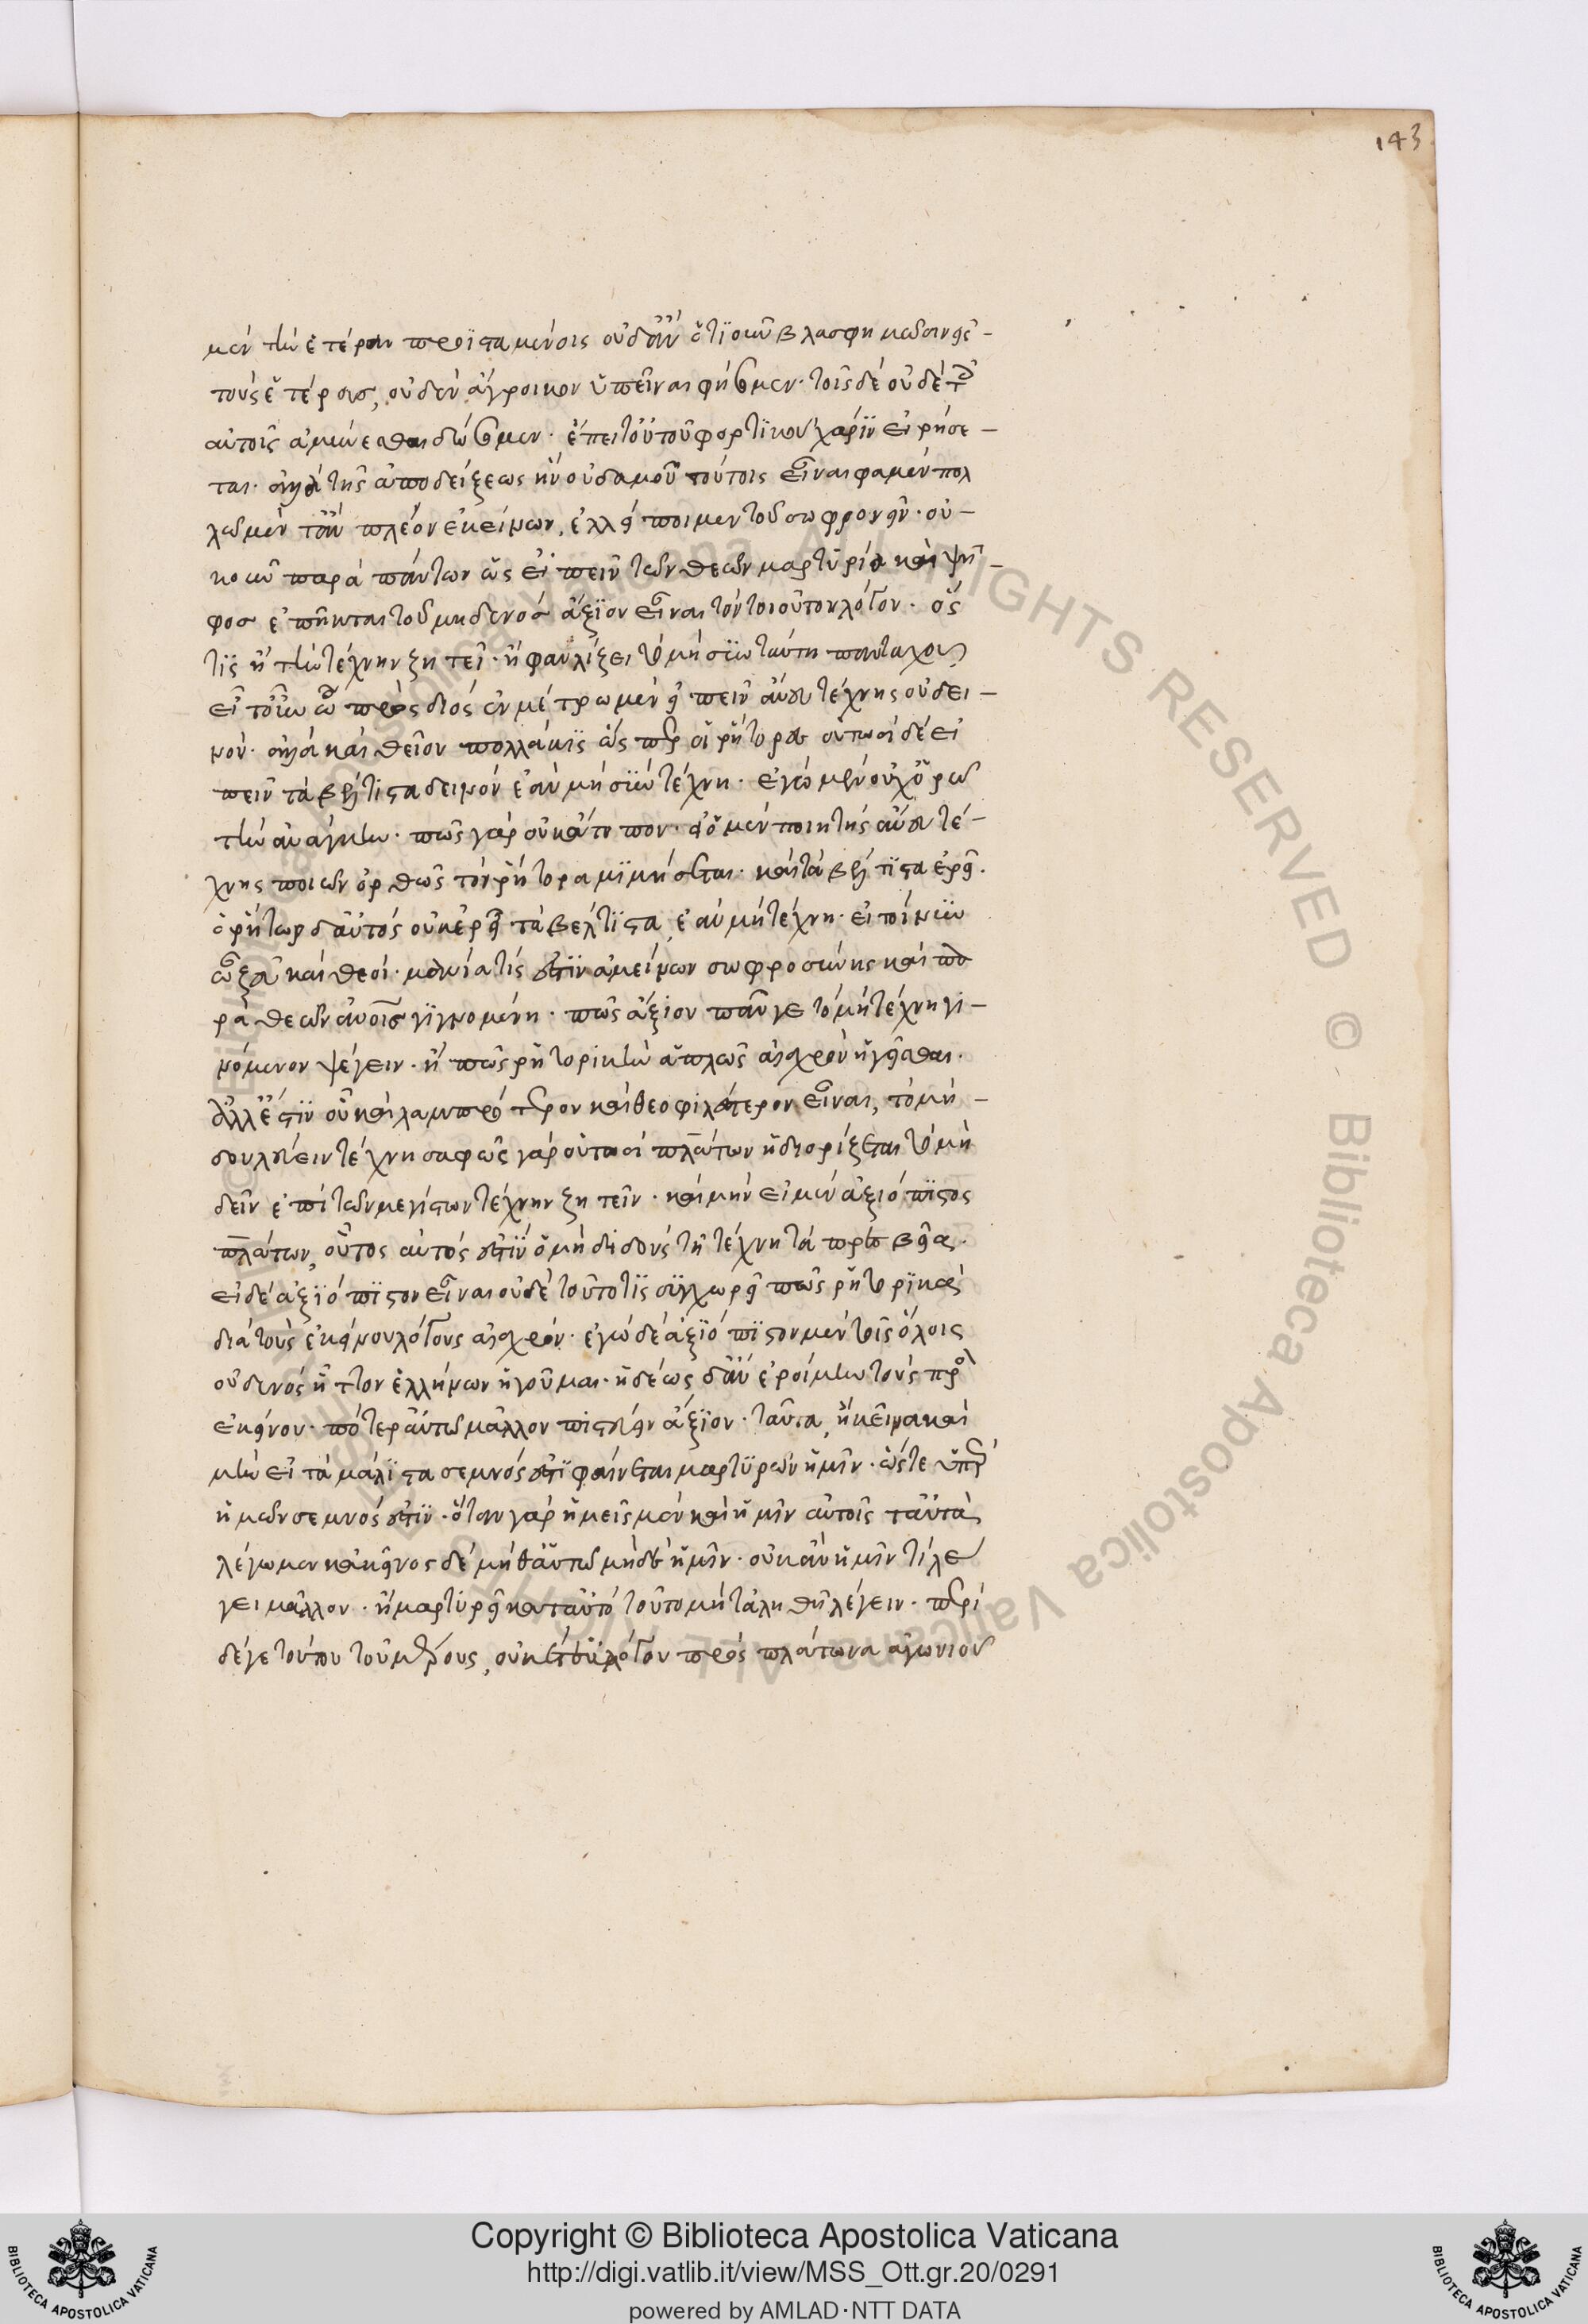 143
μὲν τὴν ἑτέραν προϊσταμένοις οὐδ' ἂν ὁτιοῦν βλασφημῶσιν εἰς
τοὺς ἑτέρους, οὐδὲν ἄγροικον ὑπεῖναι φήσομεν. τοῖς δὲ οὐδὲ τ
αὐτοῖς ἀμύνεσθαι δώσομεν. ἔπει τοῦ τοῦ φορτικοῦ χάριν εἰρήσε
ται. ἀλλὰ τῆς ἀποδείξεως ἣν οὐδαμοῦ τούτοις εἶναι φαμὲν πολ
λῶ μὲν τἂν πλέον ἐκείνων, ἐλλείποιμεν τοῦ σωφρονεῖν. οὐ
κοῦν παρὰ πάντων ὡς εἰπεῖν τῶν θεῶν μαρτυρία καὶ ψῆ
φος ἐπῆκται τοῦ μηδενὸς ἄξιον εἶναι τὸν τοιοῦτον λόγον. ὅς
τις ἢ τὴν τέχνην ζητεῖ. ἢ φαυλίζει τὸ μὴ σὺν ταύτη πανταχοῦ
εἶτ' οἴει ὦ πρὸς διὸς ἐν μέτρω μὲν εἰπεῖν ἄνευ τέχνης οὐ δει
νόν. ἀλλὰ καὶ θεῖον πολλάκις ὥσπερ οἱ ῥήτορες οὑτωσὶ δὲ εἰ
πεῖν τὰ βέλτιστα δεινὸν ἐὰν μὴ σὺν τέχνη. ἐγὼ μὲν οὐχ ὁρῶ
τὴν ἀνάγκην. πῶς γὰρ οὐκ ἄτοπον. εἰ ὁ μὲν ποιητὴς ἄνευ τέ
χνης ποιῶν ὀρθῶς τὸν ῥήτορα μιμήσεται. καὶ τὰ βέλτιστα ἐρεῖ.
ὁ ῥήτωρ δ' αὐτὸς οὐκ ἐρεῖ τὰ βέλτιστα, ἐὰν μὴ τέχνη. εἰ τοίνυν
ὦ ζεῦ καὶ θεοὶ. μανία τίς ἐστιν ἀμείνων σωφροσύνης καὶ πα
ρὰ θεῶν ἀνοις γιγνομένη. πῶς ἄξιον πᾶν γε τὸ μὴ τέχνη γι
νόμενον ψέγειν. ἢ πῶς ῥητορικὴν ἁπλῶς αἰσχρὸν ἡγεῖσθαι.
ἀλλ' ἔστιν οὗ καὶ λαμπρότερον καὶ θεοφιλέστερον εἶναι, τὸ μὴ
δουλεύειν τέχνη σαφῶς γὰρ οὑτωσὶ πλάτων ἡ διορίζεται τὸ μὴ
δεῖν ἐπὶ τῶν μεγίστων τέχνην ζητεῖν. καὶ μὴν εἰ μὲν ἀξιόπιστος
πλάτων, οὗτος αὐτός ἐστιν ὁ μὴ διδοὺς τῆ τέχνη τὰ πρεσβεῖα.
εἰ δὲ ἀξιόπιστον εἶναι οὐδὲ τοῦτο τὶς συγχωρεῖ πῶς ῥητορικὴ
διὰ τοὺς ἐκείνου λόγους αἰσχρόν. ἐγὼ δὲ ἀξιόπιστον μὲν τοῖς ὅλοις
οὐδενὸς ἧττον ἑλλήνων ἡγοῦμαι. ἡδέως δ' ἂν ἐροίμην τοὺς πρὸ
ἐκείνου. πότερ' αὐτῶ μᾶλλον πιστεύειν ἄξιον. ταῦτα, ἢ κεῖνα καὶ
μὴν εἰ τὰ μάλιστα σεμνός ἐστι φαίνεται μαρτυρῶν ἡμῖν. ὥστε ὑπὲρ
ἡμῶν σεμνός ἐστιν. ὅταν γὰρ ἡμεῖς μὲν καὶ ἡμῖν αὐτοῖς ταὐτὰ
λέγωμεν κἀκεῖνος δὲ μὴ θ' αὑτῶ μήδ' ἡμῖν. οὐκ ἂν ἡμῖν τὶ λέ
γει μᾶλλον. ἢ μαρτυρεῖ κατ' αὐτὸ τοῦτο μὴ τἀληθῆ λέγειν. περὶ
δέ γε τούτου τοῦ μέρους, οὐκ ἔσθ' ὑμῖν λόγον πρὸς πλάτωνα ἀγωνιοῦ
Copyright © Biblioteca Apostolica Vaticana
http://digi.vatlib.it/view/MSS_Ott.gr.20/0291
powered by AMLAD·NTT DATA